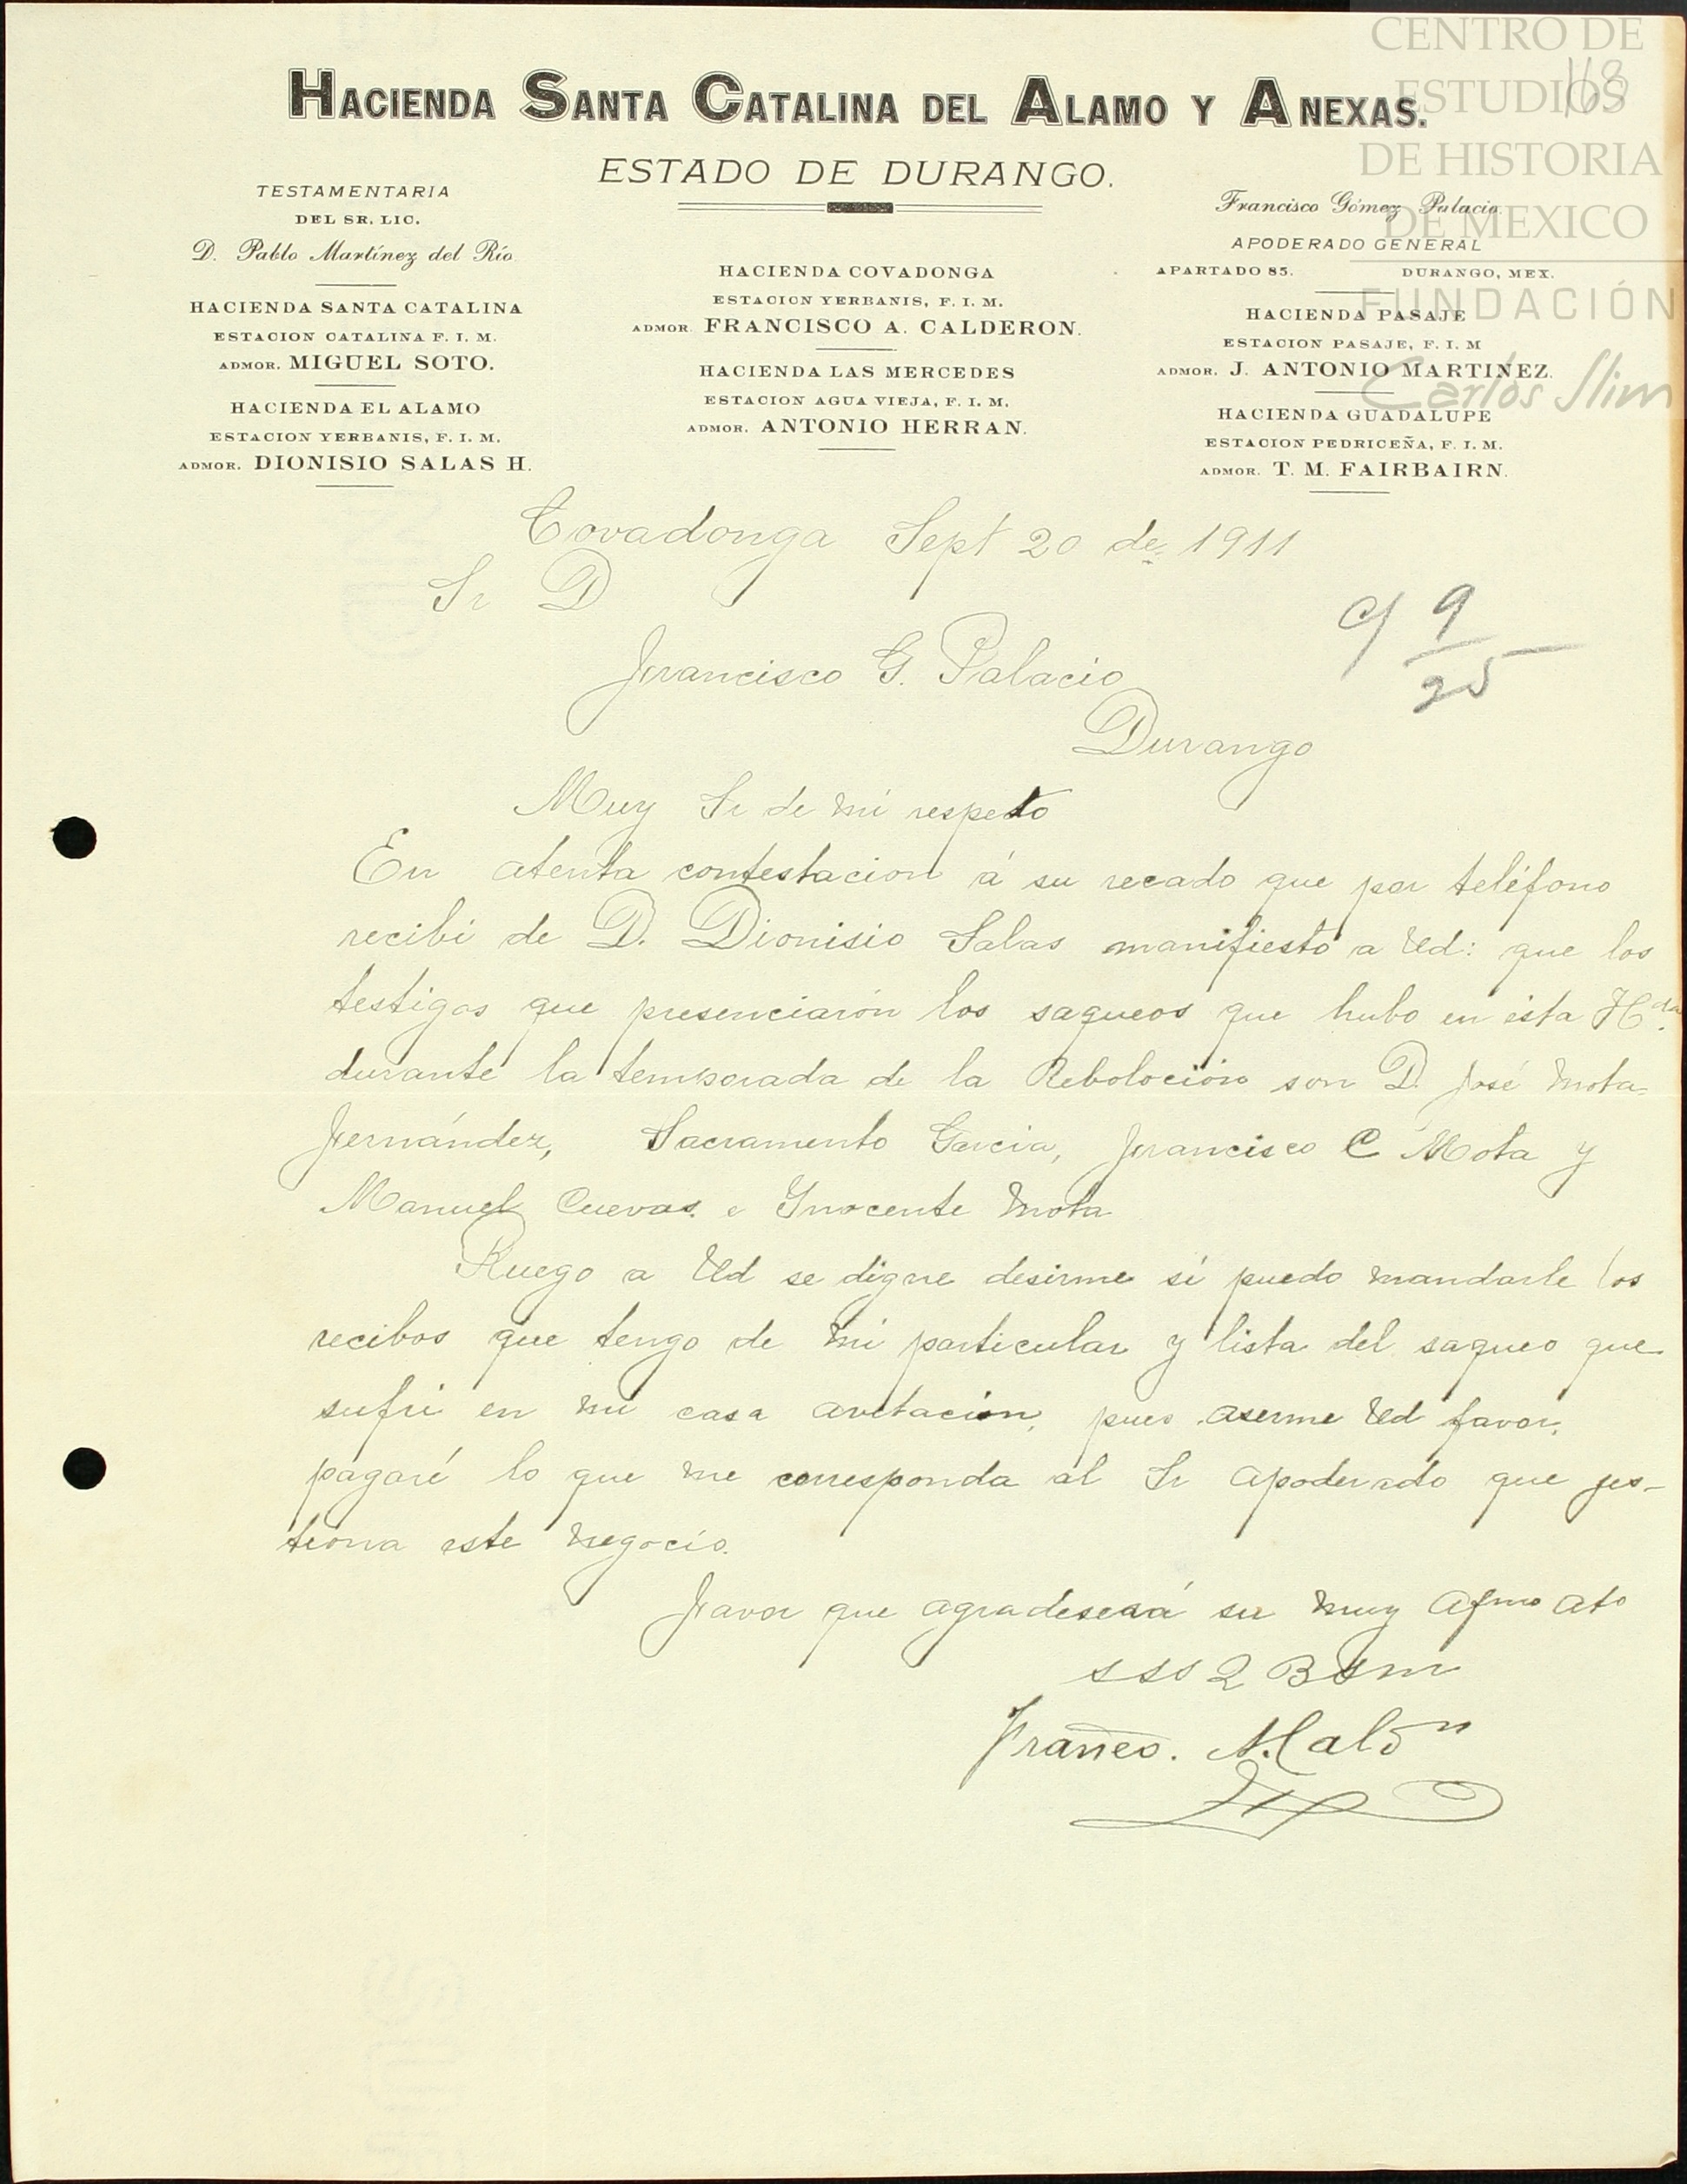 CENTRO DE
ESTUDIOS
DE HISTORIA
DE MEXICO
FUNDACIÓN
Carlos Slim
168
HACIENDA SANTA CATALINA DEL ALAMO Y ANEXAS.
ESTADO DE DURANGO.
TESTAMENTARIA
DEL SR. LIC.
D. Pablo Martínez del Río
HACIENDA SANTA CATALINA
ESTACION CATALINA F. I. M.
ADMOR. MIGUEL SOTO.
HACIENDA EL ALAMO
ESTACION YERBANIS, F. I. M.
ADMOR. DIONISIO SALAS H.
HACIENDA COVADONGA
ESTACION YERBANIS, F. I. M.
ADMOR. FRANCISCO A. CALDERON.
HACIENDA LAS MERCEDES
ESTACION AGUA VIEJA, F. I. M.
ADMOR. ANTONIO HERRAN.
Francisco Gómez Palacio.
APODERADO GENERAL
APARTADO 85. DURANGO, MEX.
HACIENDA PASAJE
ESTACION PASAJE, F. I. M
ADMOR. J. ANTONIO MARTINEZ.
HACIENDA GUADALUPE
ESTACION PEDRICEÑA, F. I. M.
ADMOR. T. M. FAIRBAIRN.
Covadonga Sept 20 de 1911
Sr D
Francisco G. Palacio
Durango
c/ 9/25
Muy Sr de mi respeto
En atenta contestacion á su recado que por teléfono
recibi de D. Dionisio Salas manifiesto a Ud: que los
testigos que presenciarón los saqueos que hubo en esta Hda.
durante la temporada de la Reboloción son D. José Mota
Fernández, Sacramento Garcia, Francisco C Mota y
Manuel Cuevas. e Ynocente Mota
Ruego a Ud se digne desirme si puedo mandarle los
recibos que tengo de mi particular y lista del saqueo que
sufri en mi casa avitación, pues aserme Ud favor,
pagaré lo que me corresponda al Sr Apoderado que jes-
tiona este negocio.
Favor que agradeserá su muy Afmo Ato
sss Q B S m
Franco.